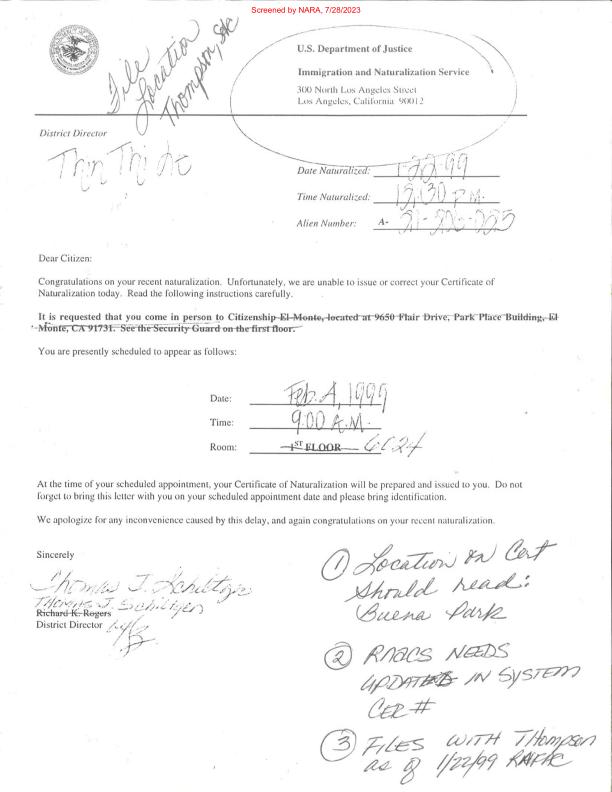 Screened by NARA, 7/28/2023
File
Location
Thompson,
U.S. Department of Justice
Immigration and Naturalization Service
300 North Los Angeles Street
Los Angeles, California 90012
District Director
Thin Thi
Date Naturalized: 1-22-99
Time Naturalized: 12:30 P.M.
Alien Number: A-
Dear Citizen:
Congratulations on your recent naturalization. Unfortunately, we are unable to issue or correct your Certificate of
Naturalization today. Read the following instructions carefully.
It is requested that you come in person to Citizenship El Monte, located at 9650 Flair Drive, Park Place Building, El
Monte, CA 91731. See the Security Guard on the first floor.
You are presently scheduled to appear as follows:
Date: Feb. 4, 1999
Time: 9:00 A.M.
Room: 1ST FLOOR 6024
At the time of your scheduled appointment, your Certificate of Naturalization will be prepared and issued to you. Do not
forget to bring this letter with you on your scheduled appointment date and please bring identification.
We apologize for any inconvenience caused by this delay, and again congratulations on your recent naturalization.
Sincerely
Thomas J. Schiltgen
Thomas J. Schiltgen
Richard K. Rogers
District Director
① Location on Cert
should read:
Buena Park
② RNACS NEEDS
UPDATED IN SYSTEM
CER #
③ FILES WITH Thompson
as of 1/22/99